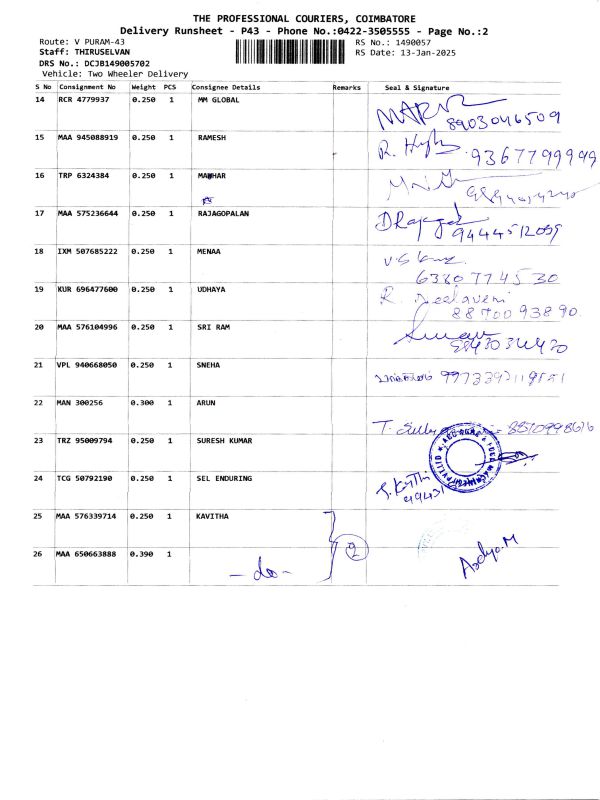 THE PROFESSIONAL COURIERS, COIMBATORE
Delivery Runsheet - P43 - Phone No.:0422-3505555 - Page No.:2
Route: V PURAM-43 RS No.: 1490057
Staff: THIRUSELVAN RS Date: 13-Jan-2025
DRS No.: DCJB149005702
Vehicle: Two Wheeler Delivery
S No Consignment No Weight PCS Consignee Details Remarks Seal & Signature
14 RCR 4779937 0.250 1 MM GLOBAL
8903046509
15 MAA 945088919 0.250 1 RAMESH
9367799999
16 TRP 6324384 0.250 1
17 MAA 575236644 0.250 1 RAJAGOPALAN
18 IXM 507685222 0.250 1 MENAA
6380774530
19 KUR 696477600 0.250 1 UDHAYA
8870093890
20 MAA 576104996 0.250 1 SRI RAM
21 VPL 940668050 0.250 1 SNEHA
22 MAN 300256 0.300 1 ARUN
23 TRZ 95009794 0.250 1 SURESH KUMAR
24 TCG 50792190 0.250 1 SEL ENDURING
25 MAA 576339714 0.250 1 KAVITHA
2
26 MAA 650663888 0.390 1 -do-